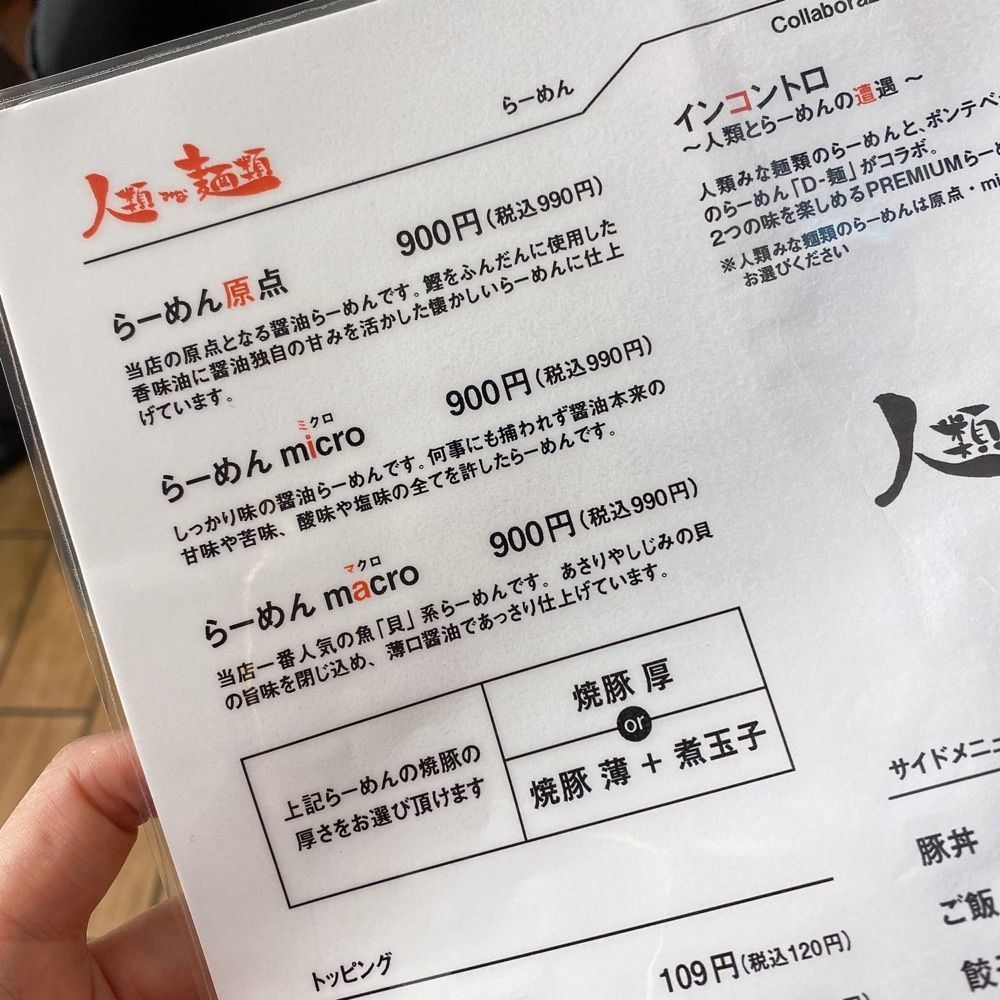 らーめん
人類みな麺類
900円(税込990円)
らーめん原点
当店の原点となる醤油らーめんです。鰹をふんだんに使用した
香味油に醤油独自の甘みを活かした懐かしいらーめんに仕上
げています。
900円(税込990円)
ミクロ
らーめん micro
しっかり味の醤油らーめんです。何事にも捕われず醤油本来の
甘味や苦味、酸味や塩味の全てを許したらーめんです。
900円(税込990円)
マクロ
らーめん macro
当店一番人気の魚「貝」系らーめんです。あさりやしじみの貝
の旨味を閉じ込め、薄口醤油であっさり仕上げています。
上記らーめんの焼豚の
厚さをお選び頂けます
焼豚 厚
or
焼豚 薄 + 煮玉子
トッピング
109円(税込120円)
インコントロ
〜人類とらーめんの遭遇〜
人類みな麺類のらーめんと、ポンテベ
のらーめん「D-麺」がコラボ。
2つの味を楽しめるPREMIUMらーめ
※人類みな麺類のらーめんは原点・mi
お選びください
人類
サイドメニュ
豚丼
ご飯